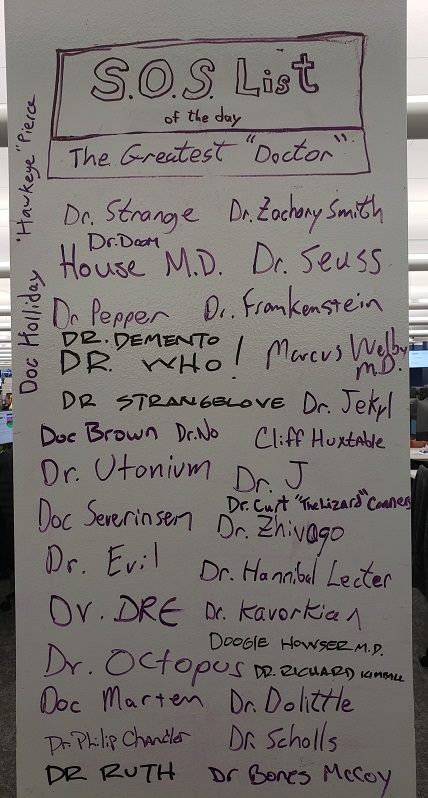 S.O.S. List
of the day
The Greatest "Doctor"
"Hawkeye" Pierce
Doc Holliday
Dr. Strange Dr. Zachary Smith
Dr. Doom
House M.D. Dr. Seuss
Dr Pepper Dr. Frankenstein
DR. DEMENTO
DR. WHO! Marcus Welby M.D.
DR STRANGELOVE Dr. Jekyl
Doc Brown Dr. No Cliff Huxtable
Dr. Utonium Dr. J
Dr. Curt "The Lizard" Conners
Doc Severinsen Dr. Zhivago
Dr. Evil Dr. Hannibal Lecter
Dr. DRE Dr. Kavorkian
DOOGIE HOWSER M.D.
Dr. Octopus DR. RICHARD KIMBALL
Doc Marten Dr. Dolittle
Dr. Philip Chandler Dr. Scholls
DR RUTH Dr Bones McCoy